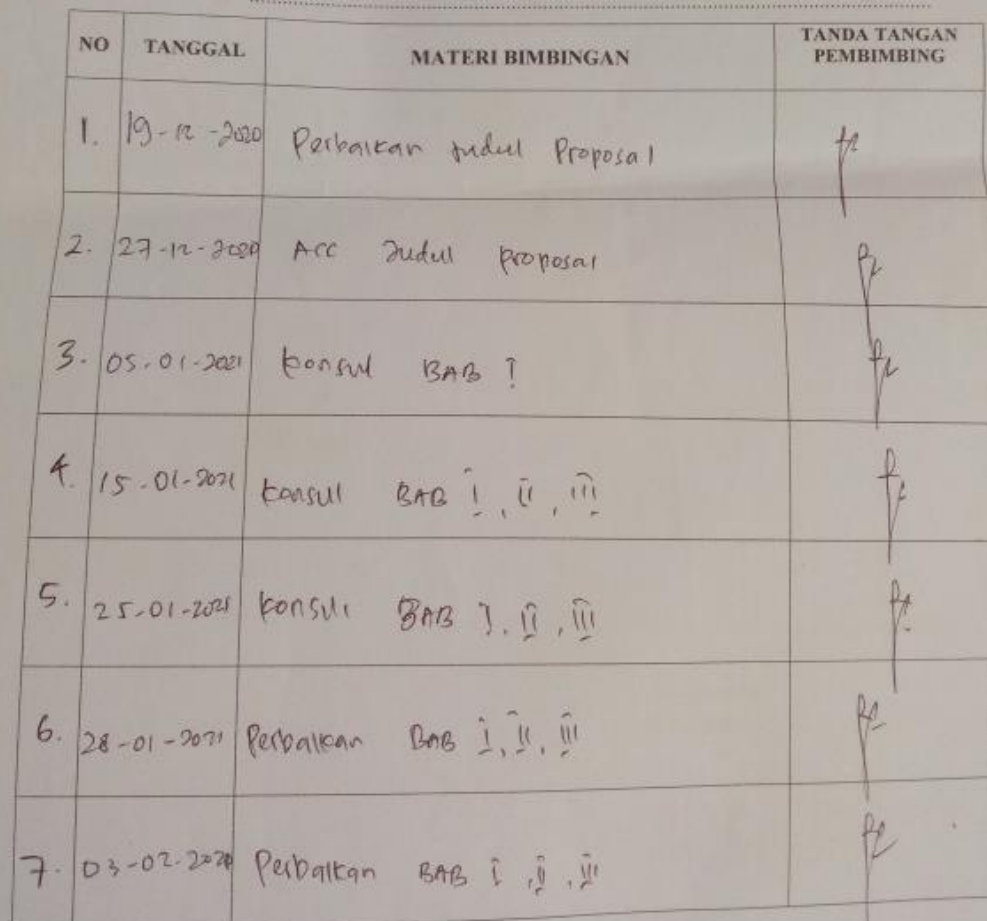 NO TANGGAL MATERI BIMBINGAN TANDA TANGAN PEMBIMBING
1. 19-12-2020 Perbaikan Judul Proposal
2. 27-12-2020 Acc Judul proposal
3. 05-01-2021 konsul BAB I
4. 15-01-2021 konsul BAB I, II, III
5. 25-01-2021 konsul BAB I, II, III
6. 28-01-2021 Perbaikan BAB I, II, III
7. 03-02-2021 Perbaikan BAB I, II, III